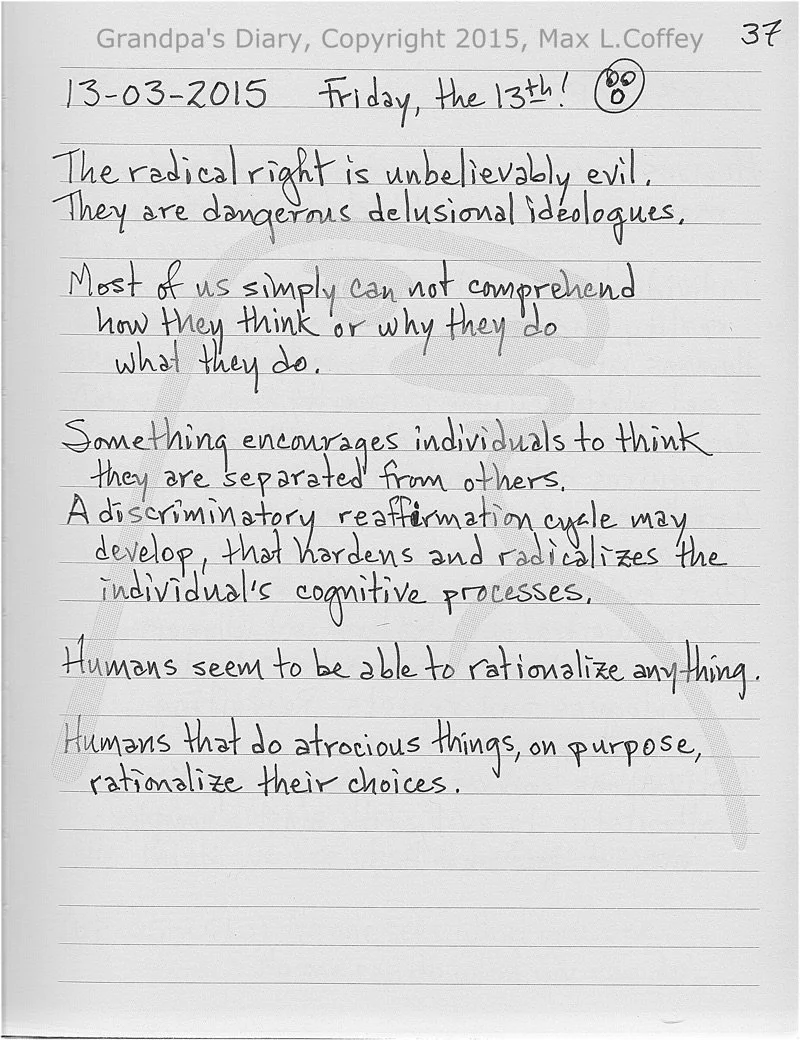 Grandpa's Diary, Copyright 2015, Max L.Coffey
37
13-03-2015 Friday, the 13th!
The radical right is unbelievably evil.
They are dangerous delusional ideologues.
Most of us simply can not comprehend
how they think or why they do
what they do.
Something encourages individuals to think
they are separated from others.
A discriminatory reaffirmation cycle may
develop, that hardens and radicalizes the
individual's cognitive processes.
Humans seem to be able to rationalize anything.
Humans that do atrocious things, on purpose,
rationalize their choices.